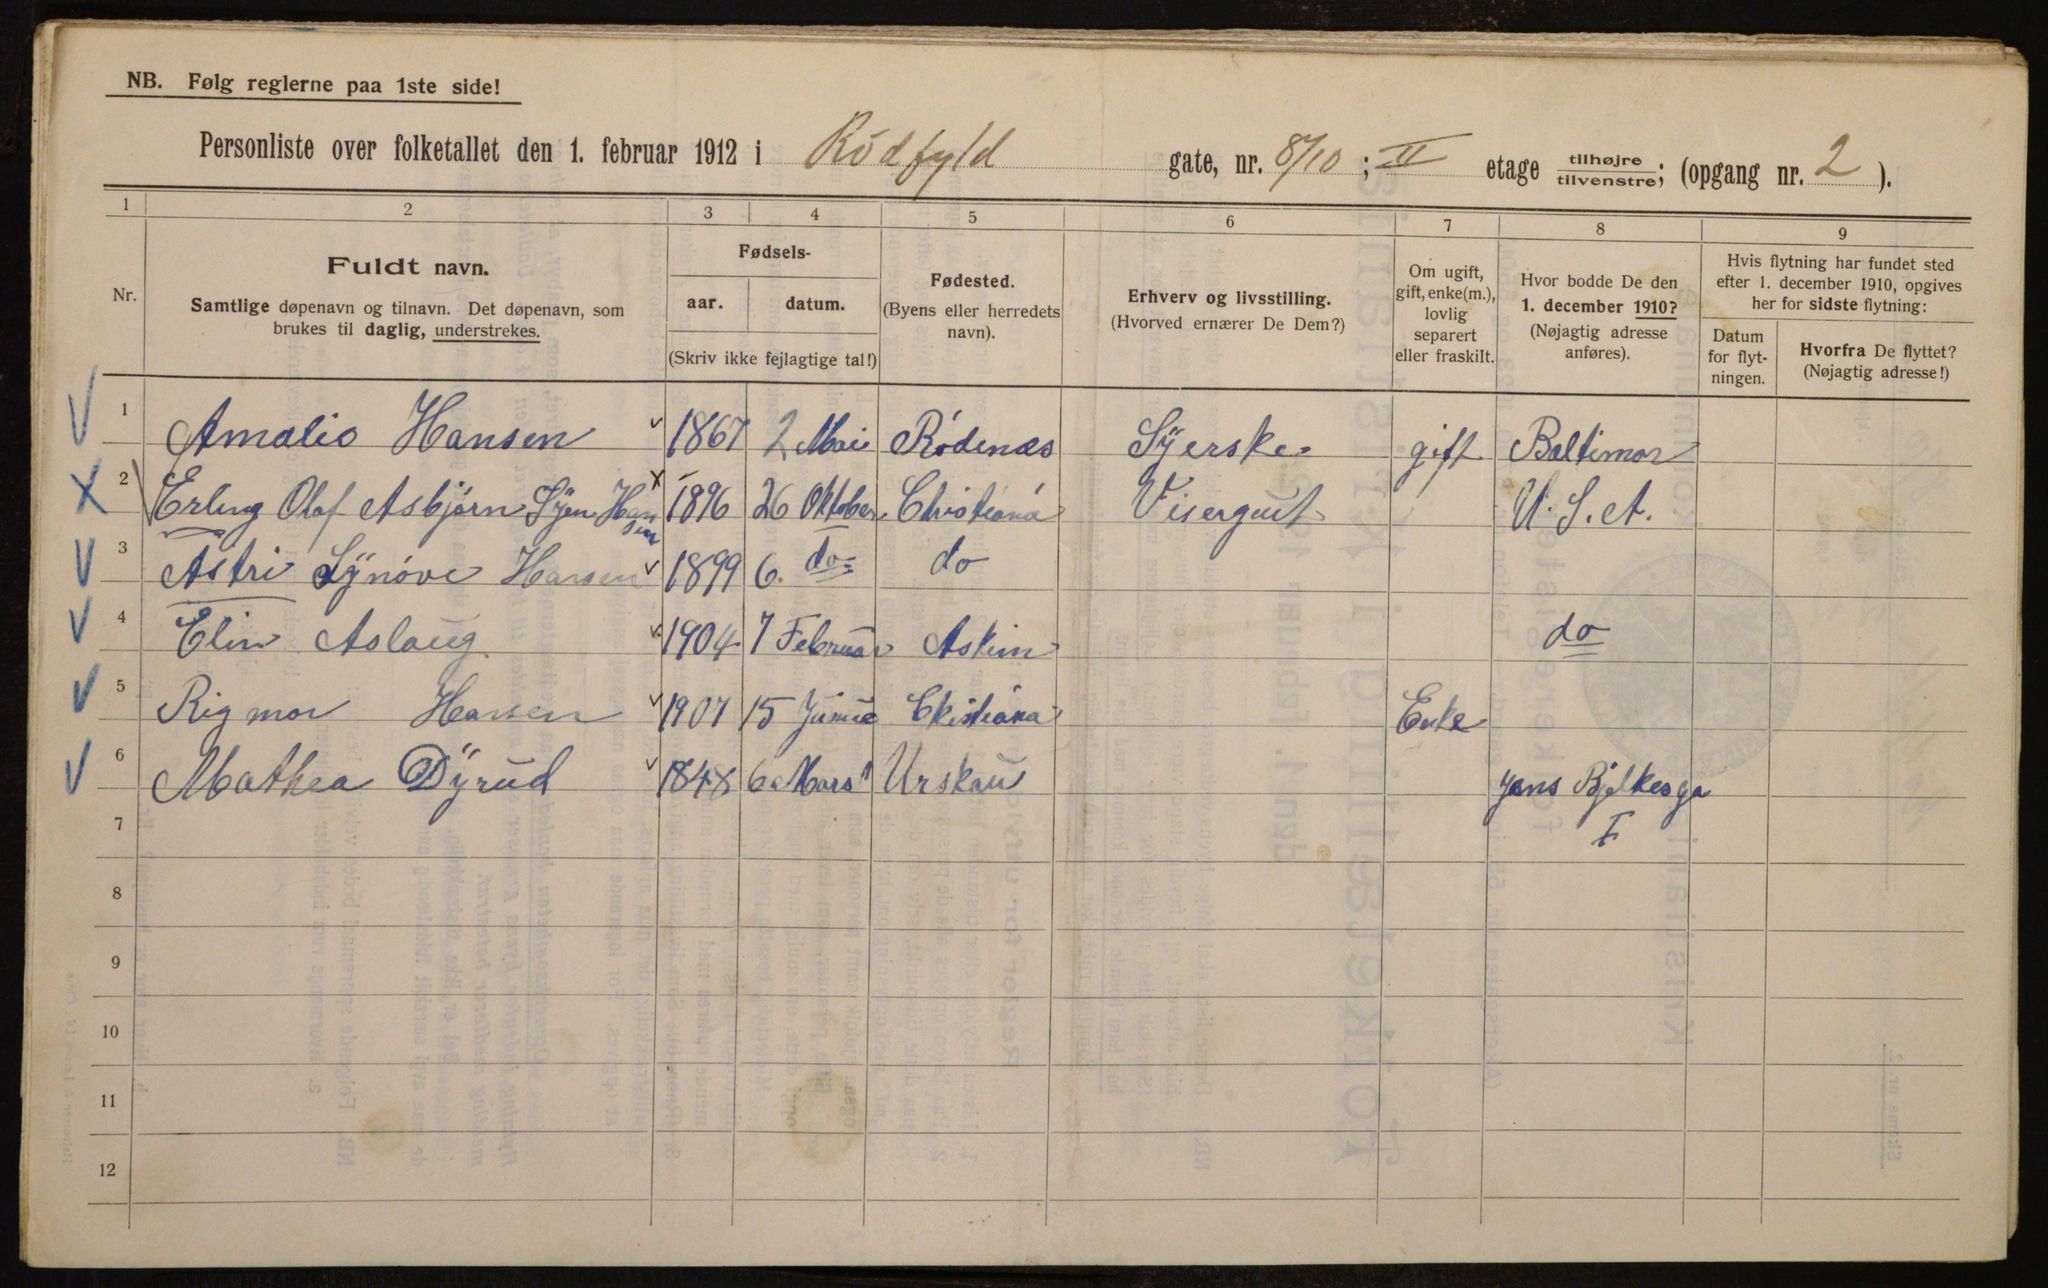 NB. Følg reglerne paa 1ste side!
Personliste over folketallet den 1. februar 1912 i Rødfyld gate, nr. 8/10 ; II etage tilhøjre/tilvenstre; (opgang nr. 2 ).
1 2 3 4 5 6 7 8 9
Nr.
Fuldt navn.
Samtlige døpenavn og tilnavn. Det døpenavn, som
brukes til daglig, understrekes.
Fødsels-
aar. datum.
(Skriv ikke fejlagtige tal!)
Fødested.
(Byens eller herredets
navn).
Erhverv og livsstilling.
(Hvorved ernærer De Dem?)
Om ugift,
gift, enke(m.),
lovlig
separert
eller fraskilt.
Hvor bodde De den
1. december 1910?
(Nøjagtig adresse
anføres).
Hvis flytning har fundet sted
efter 1. december 1910, opgives
her for sidste flytning:
Datum
for flyt-
ningen.
Hvorfra De flyttet?
(Nøjagtig adresse!)
1 Amalie Hansen 1867 2 Mai Rødenæs Syerske gift Baltimor
2 Erling Olaf Asbjørn Hansen 1896 26 Oktober Christiana Visergut U.S.A.
3 Astri Synøve Hansen 1899 6. do do
4 Elin Aslaug 1904 7 Februar Askim do
5 Rigmor Hansen 1907 15 Christiana Enke
6 Mathea Dyrud 1848 6 Mars Urskau Jens Bjelkesga
7
8
9
10
11
12